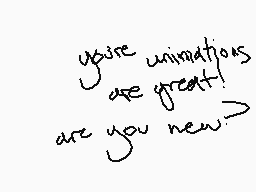 you're unimations
are great!
are you new?